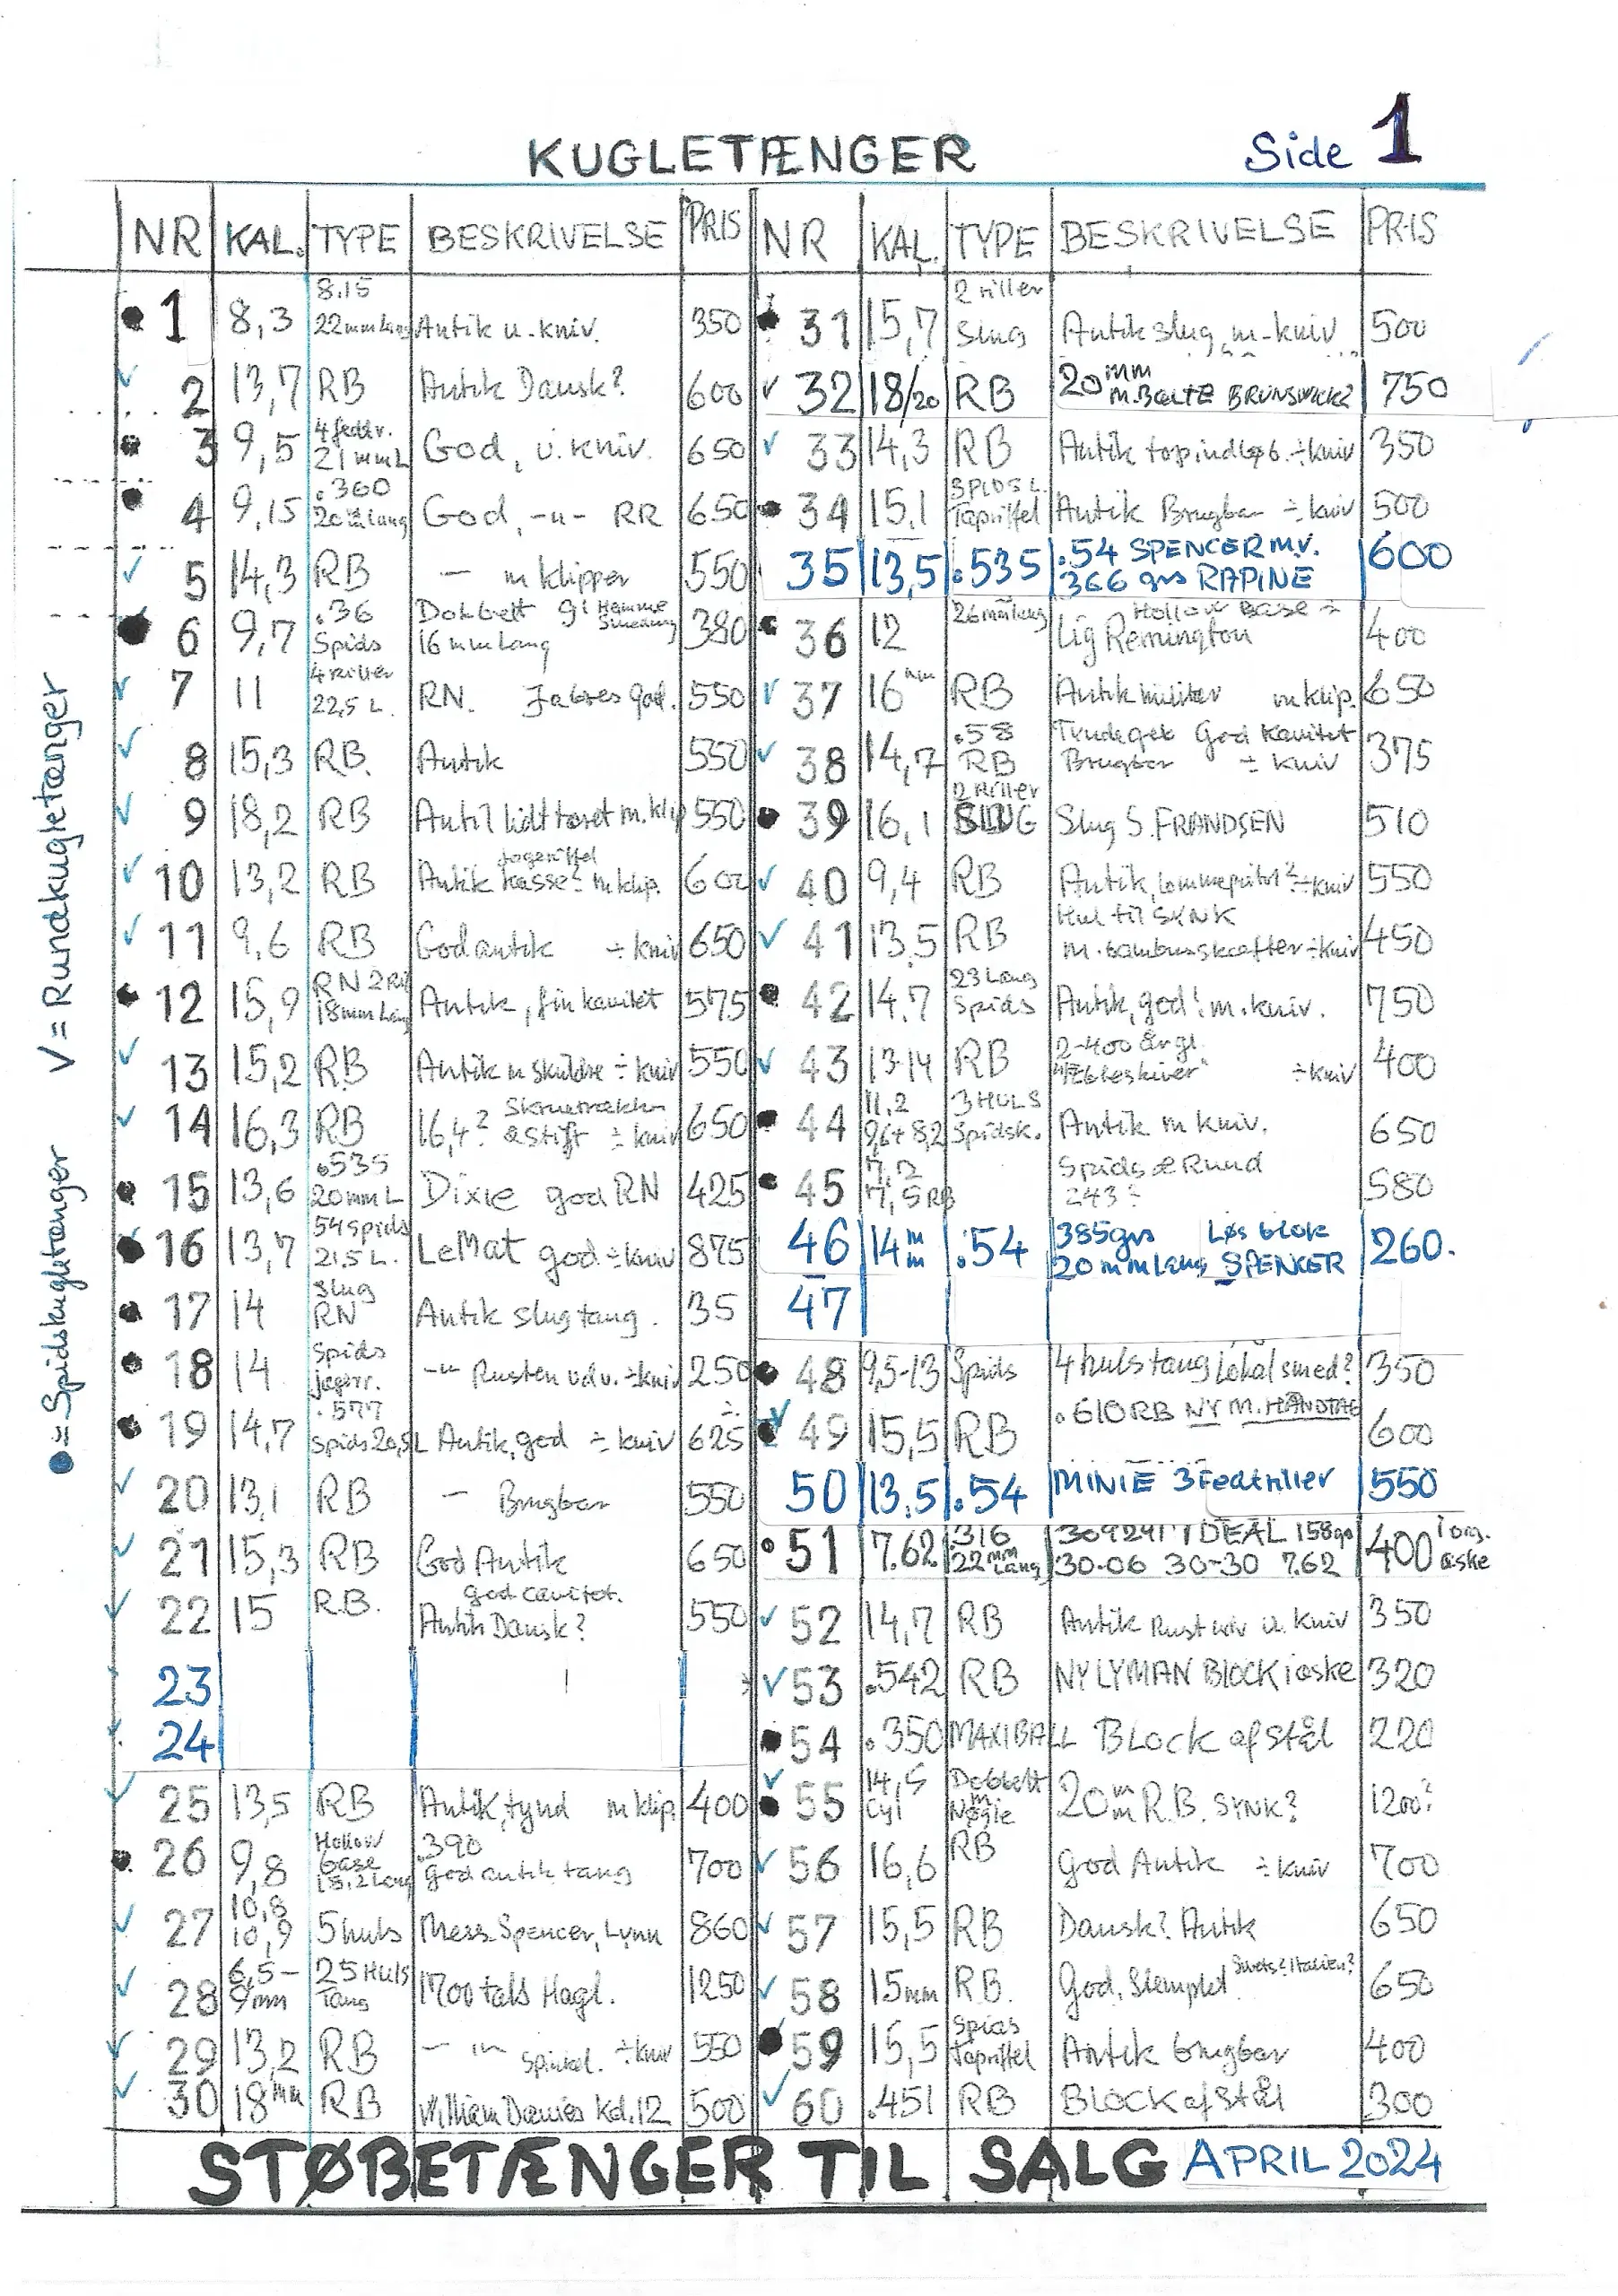 KUGLETÆNGER Side 1
NR KAL. TYPE BESKRIVELSE PRIS
1 8,3 8.15 22mm Lang Antik u. kniv. 350
2 13,7 RB Antik Dansk? 600
3 9,5 21mm L God, u. kniv. 650
4 9,15 .360 20mm lang God, -u- RR 650
5 14,3 RB — m klipper 550
6 9,7 .36 Spids Dobbelt gl Hamme Smedning 16mm Lang 380
7 11 4 riller 22,5 L. RN. god. 550
8 15,3 RB. Antik 550
9 18,2 RB Antik lidt tæret m. klip 550
10 13,2 RB Antik Jagtriffel kasse? m klip. 600
11 9,6 RB God antik ÷ kniv 650
12 15,9 RN 2 Ril 18mm Lang Antik, fin kavitet 575
13 15,2 RB Antik ÷ kniv 550
14 16,3 RB 16,4? Skruetrækker & Stift ÷ kniv 650
15 13,6 .535 20mm L Dixie god RN 425
16 13,7 54 Spids 21,5 L. LeMat god ÷ kniv 875
17 14 Slug RN Antik slug tang. 35
18 14 Spids jegerr. -"- Rusten udv. ÷ kniv 250
19 14,7 .577 Spids 20,5L Antik, god ÷ kniv 625
20 13,1 RB — Brugbar 550
21 15,3 RB God Antik 650
22 15 R.B. god cavitet. Antik Dansk? 550
23
24
25 13,5 RB Antik, tynd m klip. 400
26 9,8 Hollow base 18,2 Lang .390 god antik tang 700
27 10,8 10,9 5 huls Mess. Spencer, Lynn 860
28 6,5- 9mm 25 Huls Tang 1700 tals Hagl. 1250
29 13,2 RB — "— ÷ kniv 550
30 18mm RB William Davies Kal. 12 500
NR KAL. TYPE BESKRIVELSE PRIS
31 15,7 2 riller Slug Antik slug, m-kniv 500
32 18/20 RB 20mm M. BÆLTE BRUNSWICK? 750
33 14,3 RB Antik topindløb. ÷ kniv 350
34 15,1 Tapriffel Antik Brugbar ÷ kniv 500
35 13,5 .535 .54 SPENCER M.V. 366 grs RAPINE 600
36 12 26mm lang Hollow Base ÷ Lig Remington 400
37 16mm RB Antik militær m klip. 650
38 14,7 .58 RB God Kavitet Brugbar ÷ kniv 375
39 16,1 2 Riller SLUG Slug S. FRANDSEN 510
40 9,4 RB Antik, Lommepistol? ÷ kniv 550
41 13,5 RB Hul til SYNK m. bambusskæfter ÷ kniv 450
42 14.7 23 Lang Spids Antik, god! m. kniv. 750
43 13-14 RB 2-400 år gl. "Æbleskiver" ÷ kniv 400
44 11,2 9,6+8,2 3 HULS Spidsk. Antik m kniv. 650
45 7,5 RB Spids & Rund 243? 580
46 14mm .54 385grs Løs blok 20 mm Lang SPENCER 260.
47
48 9,5-13 Spids 4 huls tang Lokal smed? 350
49 15,5 RB .610RB NY M. HÅNDTAG 600
50 13,5 .54 MINIE 3 Fedtriller 550
51 7.62 .316 22mm Lang 309241 IDEAL 158grs 30-06 30-30 7.62 400 i org. æske
52 14,7 RB Antik Rust udv u. kniv 350
53 .542 RB NY LYMAN BLOCK i æske 320
54 .350 MAXIBALL BLock af Stål 220
55 14,5 Cyl Dobbelt m Nøgle 20mm R.B. SYNK? 1200?
56 16,6 RB God Antik ÷ kniv 700
57 15,5 RB Dansk? Antik 650
58 15mm RB. God, Stemplet Italien? 650
59 15,5 Spids tapriffel Antik brugbar 400
60 .451 RB BLOCK af Stål 300
STØBETÆNGER TIL SALG APRIL 2024
●= Spidskugletænger V = Rundkugletænger